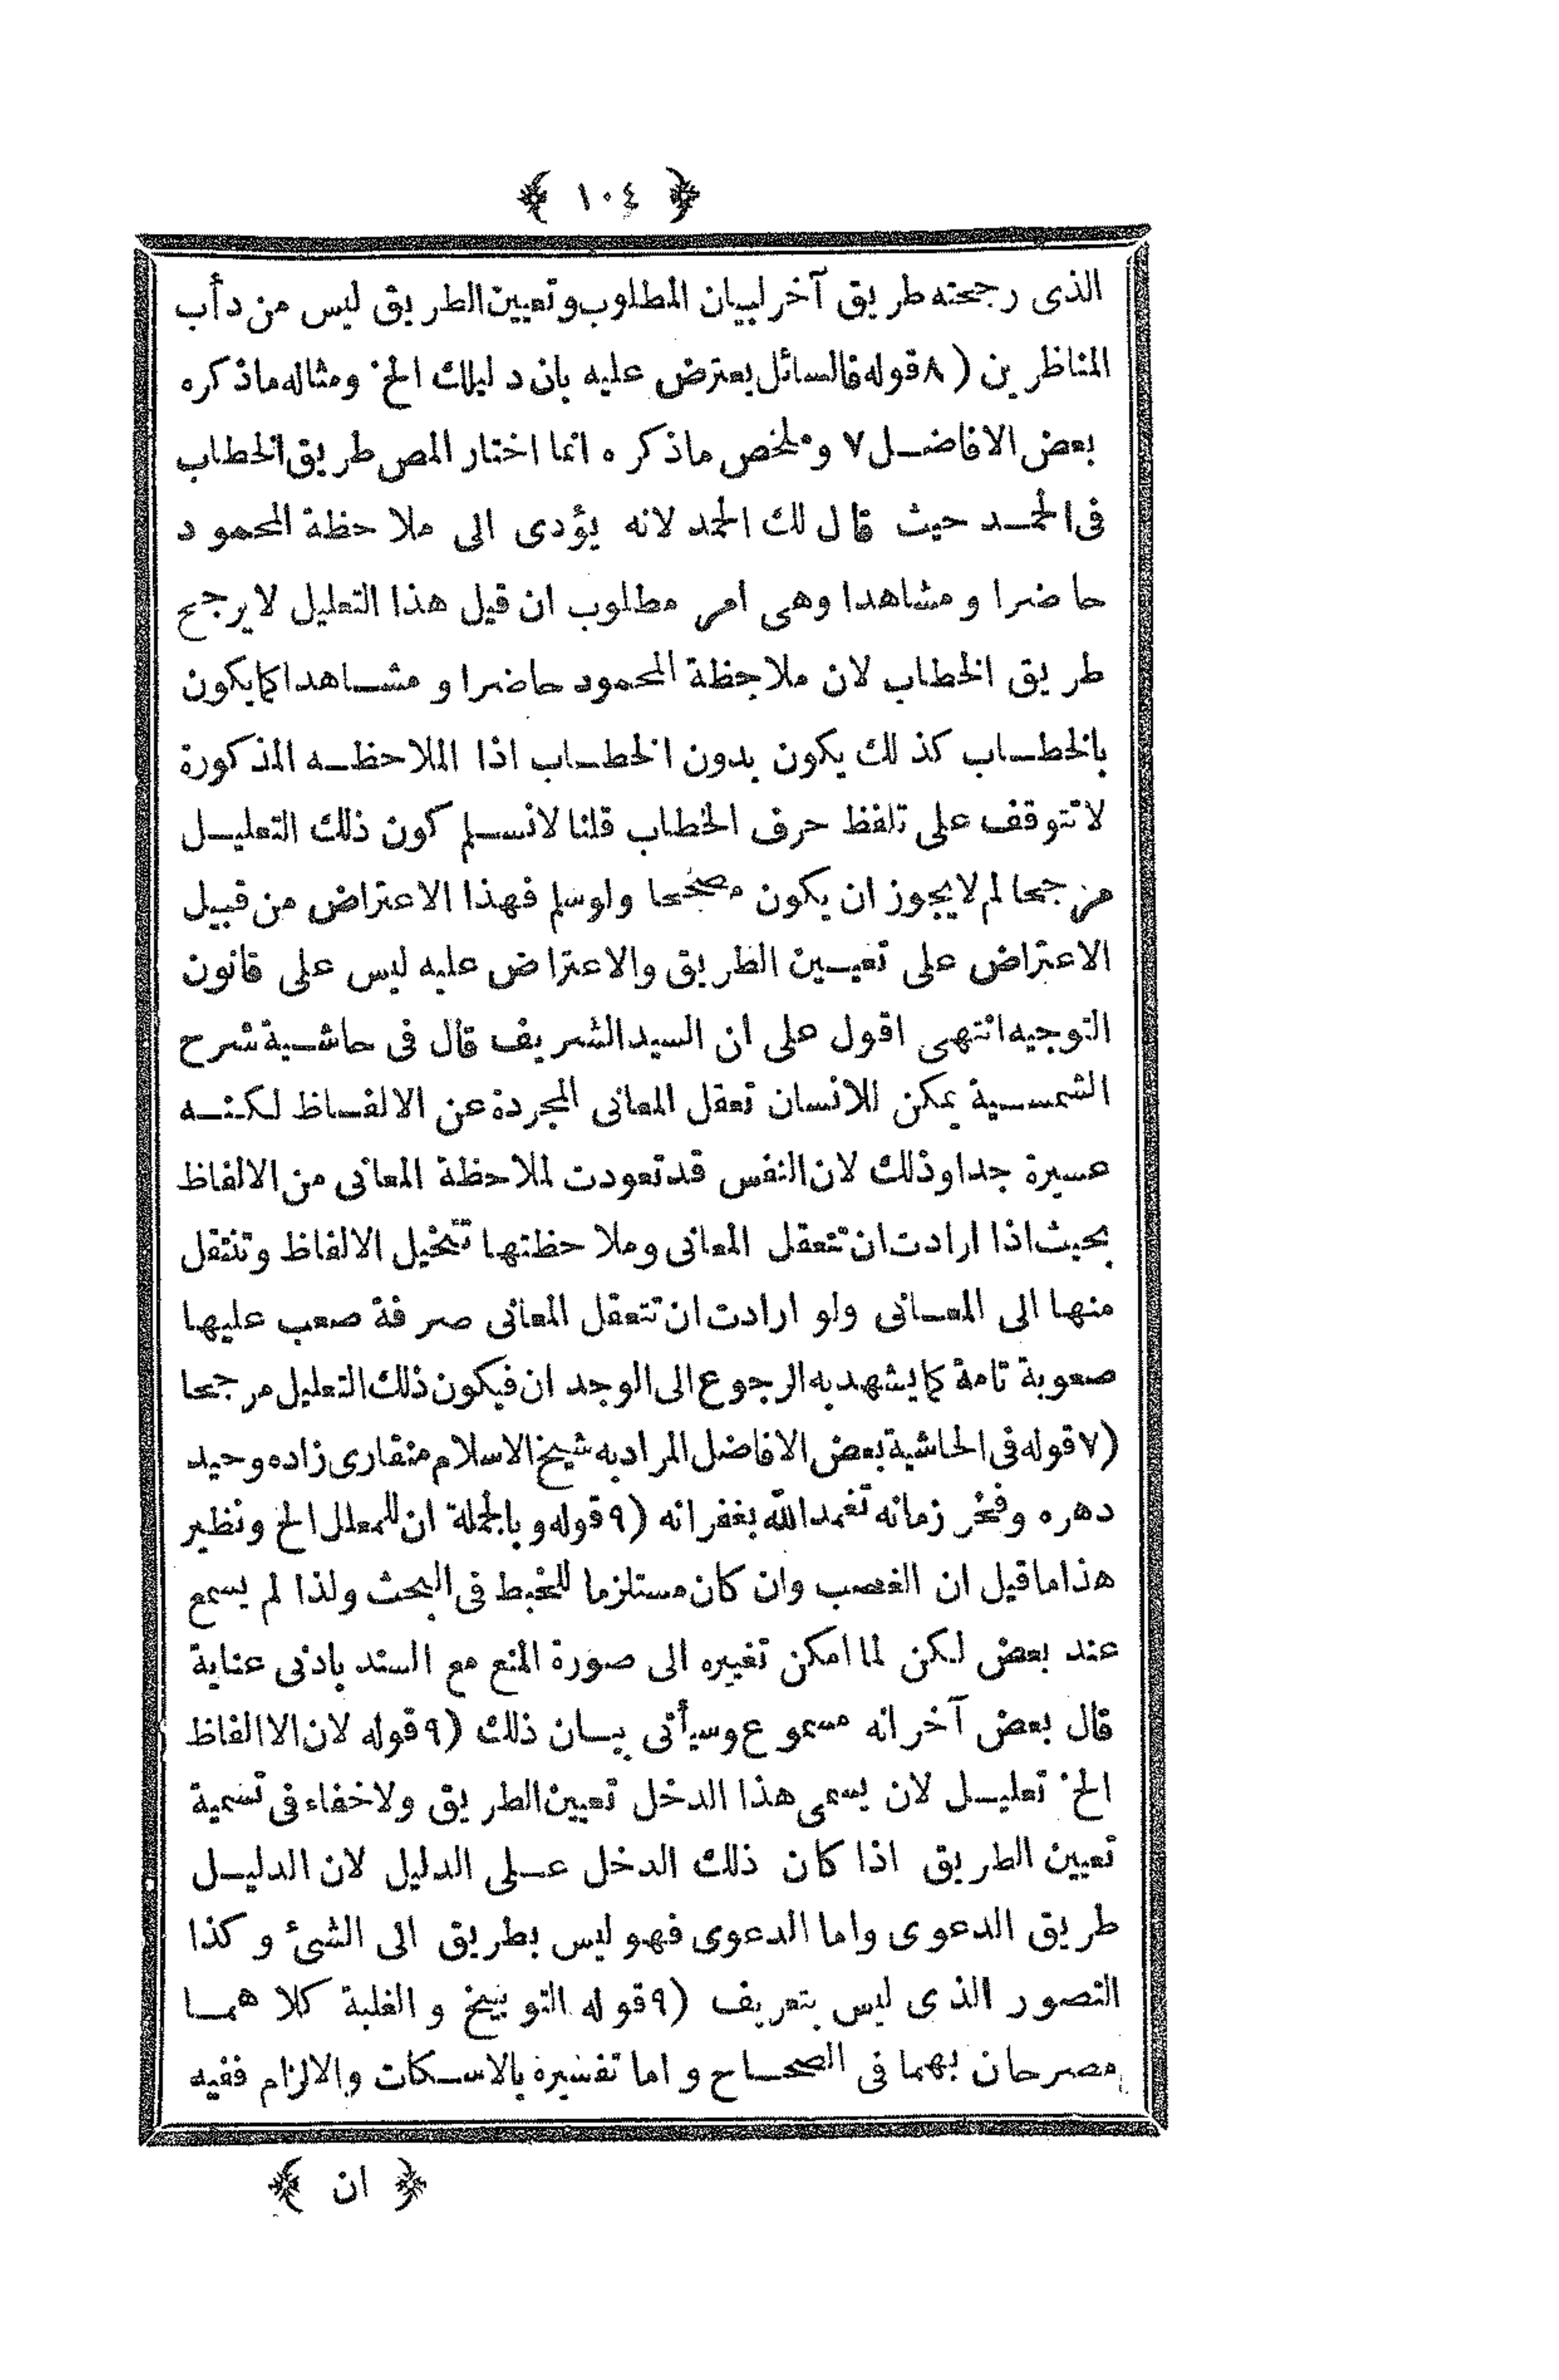 ﴿ ١٠٤ ﴾
الذى رجحته طريق آخر لبيان المطلوب وتعيين الطريق ليس من دأب
المناظرين (٨ قوله فالسائل يعترض عليه بان دليلك الخ ومثاله ماذكره
بعض الافاضل ٧ وملخص ماذكره انما اختار المص طريق الخطاب
فى الحمد حيث قال لك الحمد لانه يؤدى الى ملاحظة المحمود
حاضرا ومشاهدا وهى امر مطلوب ان قيل هذا التعليل لا يرجح
طريق الخطاب لان ملاحظة المحمود حاضرا و مشاهدا كما يكون
بالخطاب كذلك يكون بدون الخطاب اذا الملاحظه المذكورة
لا تتوقف على تلفظ حرف الخطاب قلنا لانسلم كون ذلك التعليل
مرجحا لم لا يجوز ان يكون مصححا ولوسلم فهذا الاعتراض من قبيل
الاعتراض على تعيين الطريق والاعتراض عليه ليس على قانون
التوجيه انتهى اقول على ان السيد الشريف قال فى حاشية شرح
الشمسية يمكن للانسان تعقل المعانى المجردة عن الالفاظ لكنه
عسيرة جدا وذلك لان النفس قد تعودت لملاحظة المعانى من الالفاظ
بحيث اذا ارادت ان تتعقل المعانى وملاحظتها تتخيل الالفاظ وتنتقل
منها الى المعانى ولو ارادت ان تتعقل المعانى صرفة صعب عليها
صعوبة تامة كما يشهد به الرجوع الى الوجدان فيكون ذلك التعليل مرجحا
(٧ قوله فى الحاشية بعض الافاضل المراد به شيخ الاسلام منقارى زاده وحيد
دهره وفخر زمانه تغمد الله بغفرانه (٩ قوله وبالجملة ان للمعلل الخ ونظير
هذا ماقيل ان الغصب وان كان مستلزما للخبط فى البحث ولذا لم يسمع
عند بعض لكن لما امكن تغييره الى صورة المنع مع السند بادنى عناية
قال بعض آخر انه مسموع وسيأتى بيان ذلك (٩ قوله لان الاالفاظ
الخ تعليل لان يسمى هذا الدخل تعيين الطريق ولاخفاء فى تسمية
تعيين الطريق اذا كان ذلك الدخل على الدليل لان الدليل
طريق الدعوى واما الدعوى فهو ليس بطريق الى الشئ وكذا
التصور الذى ليس بتعريف (٩ قوله التوبيخ و الغلبة كلا هما
مصرحان بهما فى الصحاح و اما تفسيره بالاسكات والالزام ففيه
﴿ ان ﴾